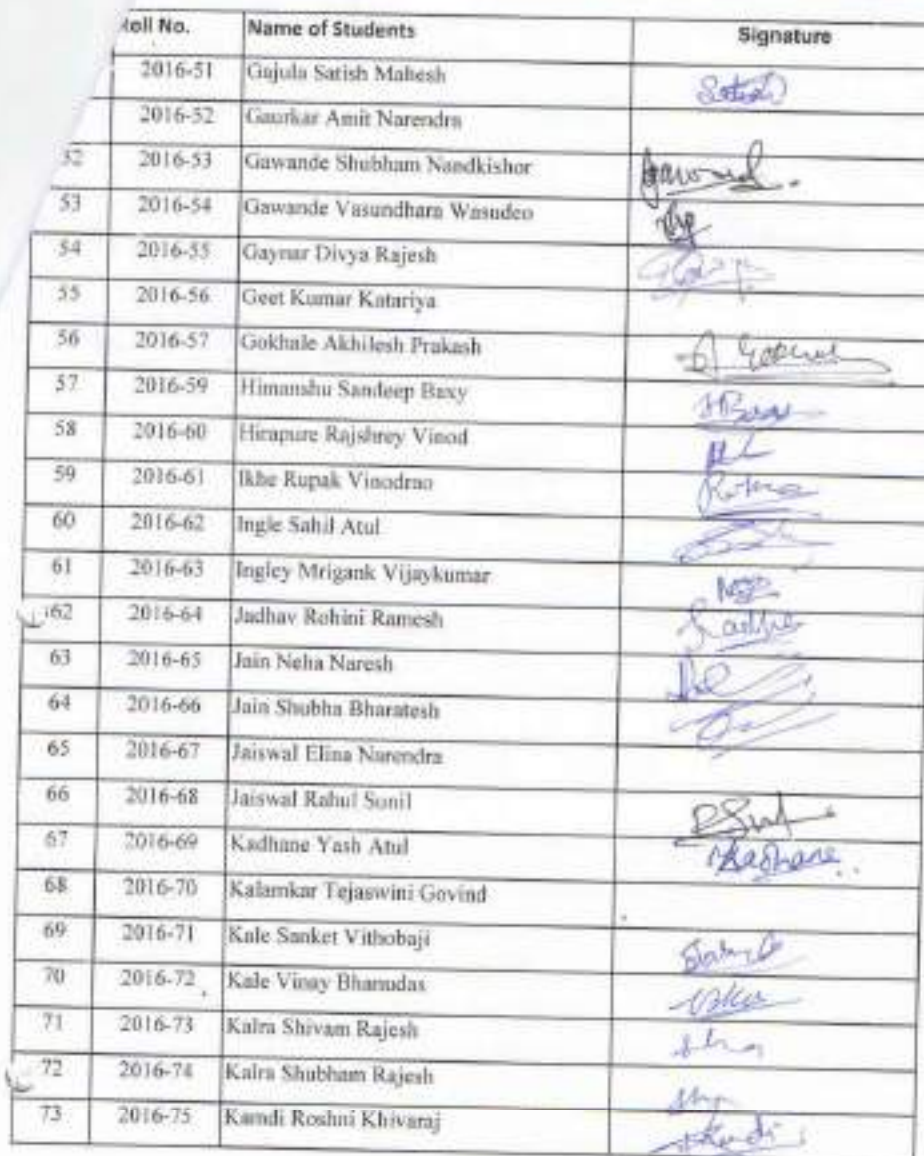 Roll No. Name of Students Signature
2016-51 Gajula Satish Mahesh Satish
2016-52 Gaurkar Amit Narendra
52 2016-53 Gawande Shubham Nandkishor
53 2016-54 Gawande Vasundhara Wasudeo
54 2016-55 Gaynar Divya Rajesh
55 2016-56 Geet Kumar Katariya
56 2016-57 Gokhale Akhilesh Prakash
57 2016-59 Himanshu Sandeep Baxy
58 2016-60 Hirapure Rajshrey Vinod
59 2016-61 Ikhe Rupak Vinodrao
60 2016-62 Ingle Sahil Atul
61 2016-63 Ingley Mrigank Vijaykumar
62 2016-64 Jadhav Rohini Ramesh
63 2016-65 Jain Neha Naresh
64 2016-66 Jain Shubha Bharatesh
65 2016-67 Jaiswal Elina Narendra
66 2016-68 Jaiswal Rahul Sunil
67 2016-69 Kadhane Yash Atul Kadhane
68 2016-70 Kalamkar Tejaswini Govind
69 2016-71 Kale Sanket Vithobaji
70 2016-72 Kale Vinay Bhanudas
71 2016-73 Kalra Shivam Rajesh
72 2016-74 Kalra Shubham Rajesh
73 2016-75 Kamdi Roshni Khivaraj